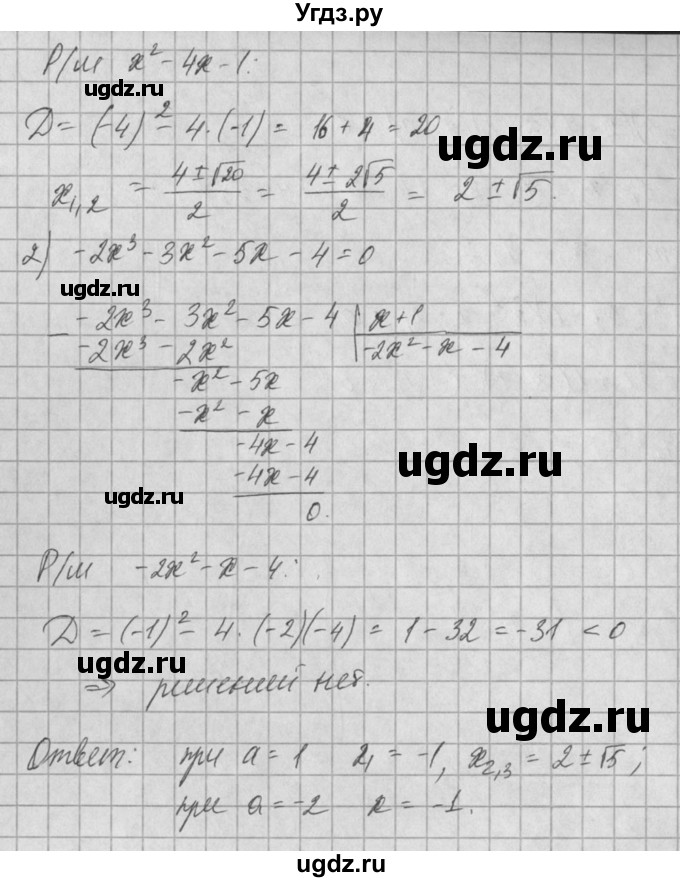 Угдз.ру
Р/м x² - 4x - 1:
ugdz.ru
D = (-4)² - 4·(-1) = 16 + 4 = 20
ugdz.ru
x₁,₂ = (4 ± √20)/2 = (4 ± 2√5)/2 = 2 ± √5.
2) -2x³ - 3x² - 5x - 4 = 0
-2x³ - 3x² - 5x - 4 | x + 1
-2x³ - 2x² | -2x² - x - 4
-x² - 5x
-x² - x
-4x - 4
ugdz.ru
-4x - 4
ugdz.ru
0.
Р/м -2x² - x - 4:
D = (-1)² - 4·(-2)(-4) = 1 - 32 = -31 < 0
ugdz.ru
⇒ решений нет.
ugdz.ru
Ответ: при a = 1 x₁ = -1, x₂,₃ = 2 ± √5;
при a = -2 x = -1.
ugdz.ru